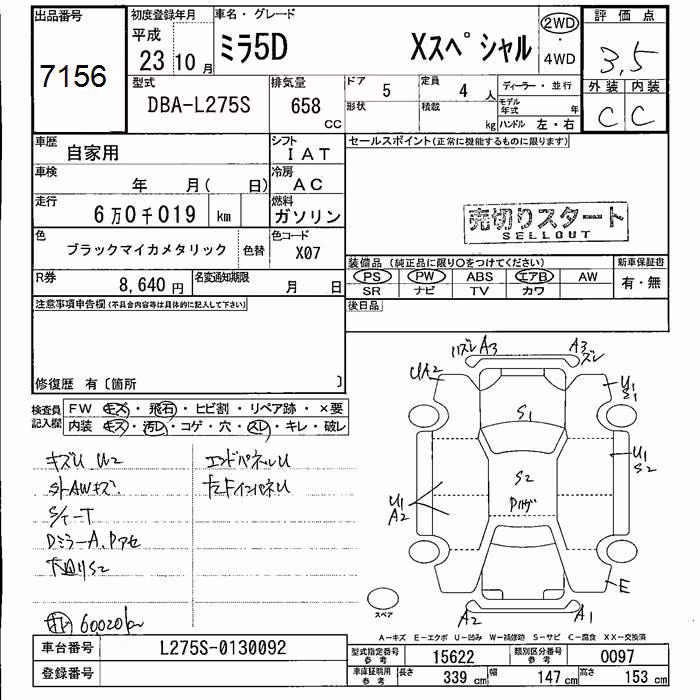 出品番号
7156
初度登録年月
平成
23 10 月
車名・グレード
ミラ5D Xスペシャル
2WD
・
4WD
評価点
3,5
外装 内装
C C
型式
DBA-L275S
排気量
658
cc
ドア
5
定員
4 人
ディーラー・並行
形状
積載
kg
モデル年式
年
ハンドル 左・右
車歴
自家用
シフト
IAT
セールスポイント(正常に機能するものに限ります)
車検
年 月( 日)
冷房
AC
走行
6万0千019 km
燃料
ガソリン
売切りスタート
SELLOUT
色
ブラックマイカメタリック
色替
色コード
X07
装備品(純正品に限り○をつけてください)
新車保証書
PS PW ABS エアB AW
SR ナビ TV カワ
有・無
R券
8,640 円
名変通知期限
月 日
後日品
注意事項申告欄(不具合内容等は具体的に記入して下さい)
修復歴 有〔箇所 〕
検査員
記入欄
FW キズ・飛石・ヒビ割・リペア跡・×要
内装 キズ・汚レ・コゲ・穴・スレ・キレ・破レ
キズU U2
外AWキズ
S/T-T
DミラーA、Pアセ
下回りS2
60020km
エンドパネルU
左FインパネU
ハズレ A3
A3 ズレ
UA2
U1
S1
S1
U1
S2
S2
U1
A2
E
A2
A1
スペア
A-キズ E-エクボ U-凹み W-補修跡 S-サビ C-腐食 XX-交換済
車台番号
L275S-0130092
登録番号
型式指定番号
参考
15622
類別区分番号
参考
0097
車庫証明用
参考
長さ
339 cm
幅
147 cm
高さ
153 cm